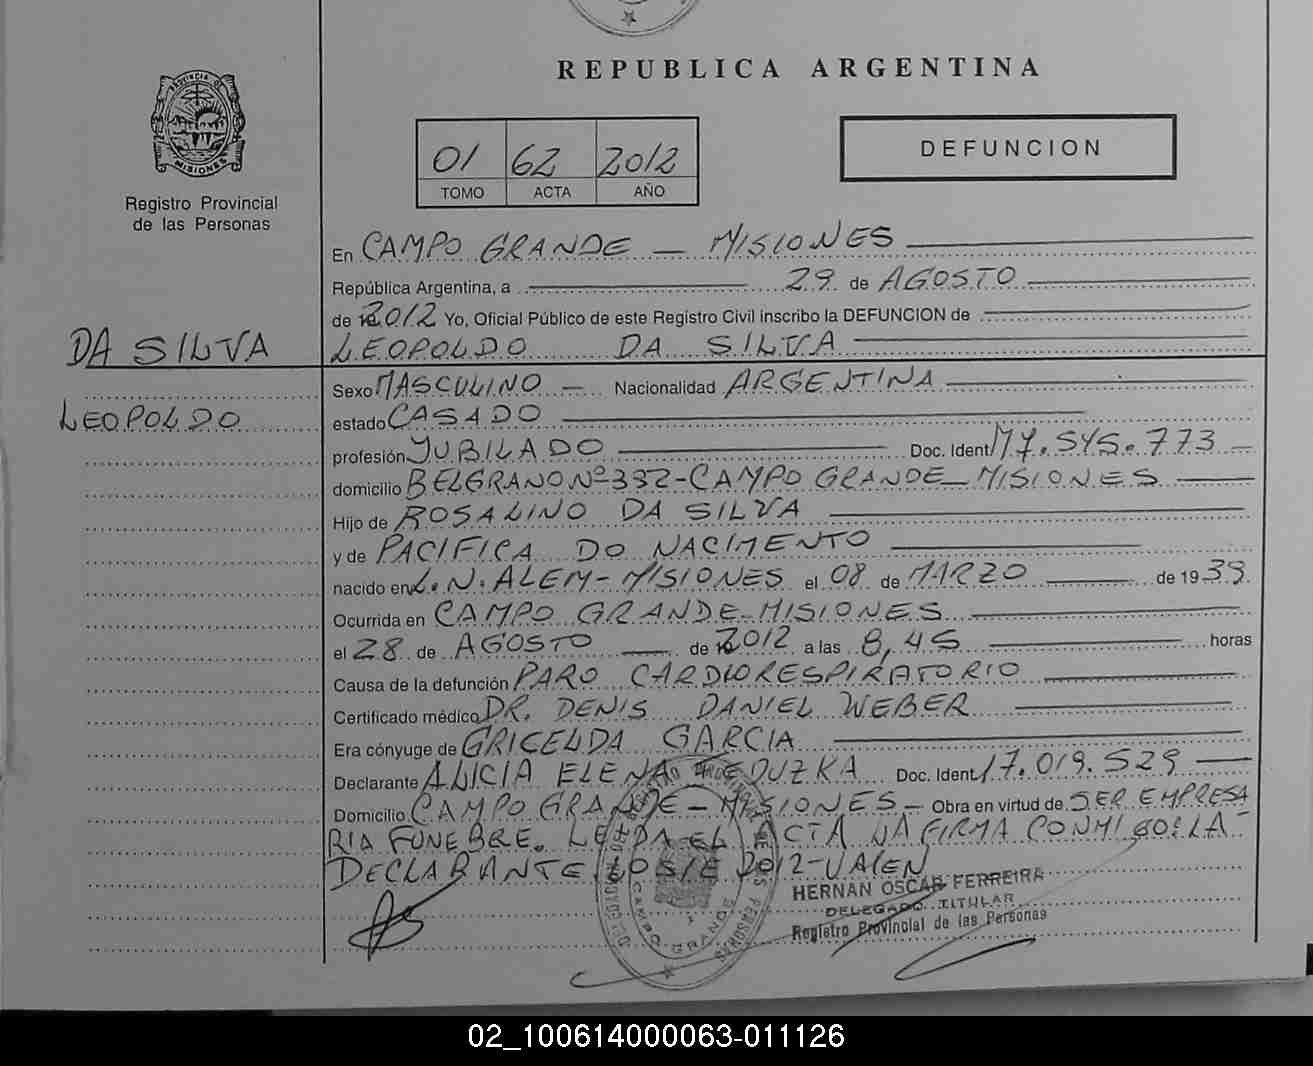 REPUBLICA ARGENTINA
PROVINCIA DE
MISIONES
Registro Provincial
de las Personas
01 62 2012
TOMO ACTA AÑO
DEFUNCION
En CAMPO GRANDE — MISIONES
República Argentina, a 29 de AGOSTO
de 2012 Yo, Oficial Público de este Registro Civil inscribo la DEFUNCION de
DA SILVA
LEOPOLDO DA SILVA
LEOPOLDO
Sexo MASCULINO — Nacionalidad ARGENTINA
estado CASADO
profesión JUBILADO Doc. Ident M7.545.773 —
domicilio BELGRANO Nº 332-CAMPO GRANDE-MISIONES
Hijo de ROSALINO DA SILVA
y de PACIFICA DO NACIMENTO
nacido en L.N. ALEM-MISIONES el 08 de MARZO de 1939
Ocurrida en CAMPO GRANDE-MISIONES
el 28 de AGOSTO de 2012 a las 8,45 horas
Causa de la defunción PARO CARDIORESPIRATORIO
Certificado médico DR. DENIS DANIEL WEBER
Era cónyuge de GRICELDA GARCIA
Declarante ALICIA ELENA Doc. Ident 17.019.529 —
Domicilio CAMPO GRANDE-MISIONES- Obra en virtud de SER EMPRESA
RIA FUNEBRE. LEIDA EL ACTA LA FIRMA CONMIGO: LA
DECLARANTE 2012-VALEN
HERNAN OSCAR FERREIRA
DELEGADO TITULAR
Registro Provincial de las Personas
CAMPO GRANDE
02_100614000063-011126